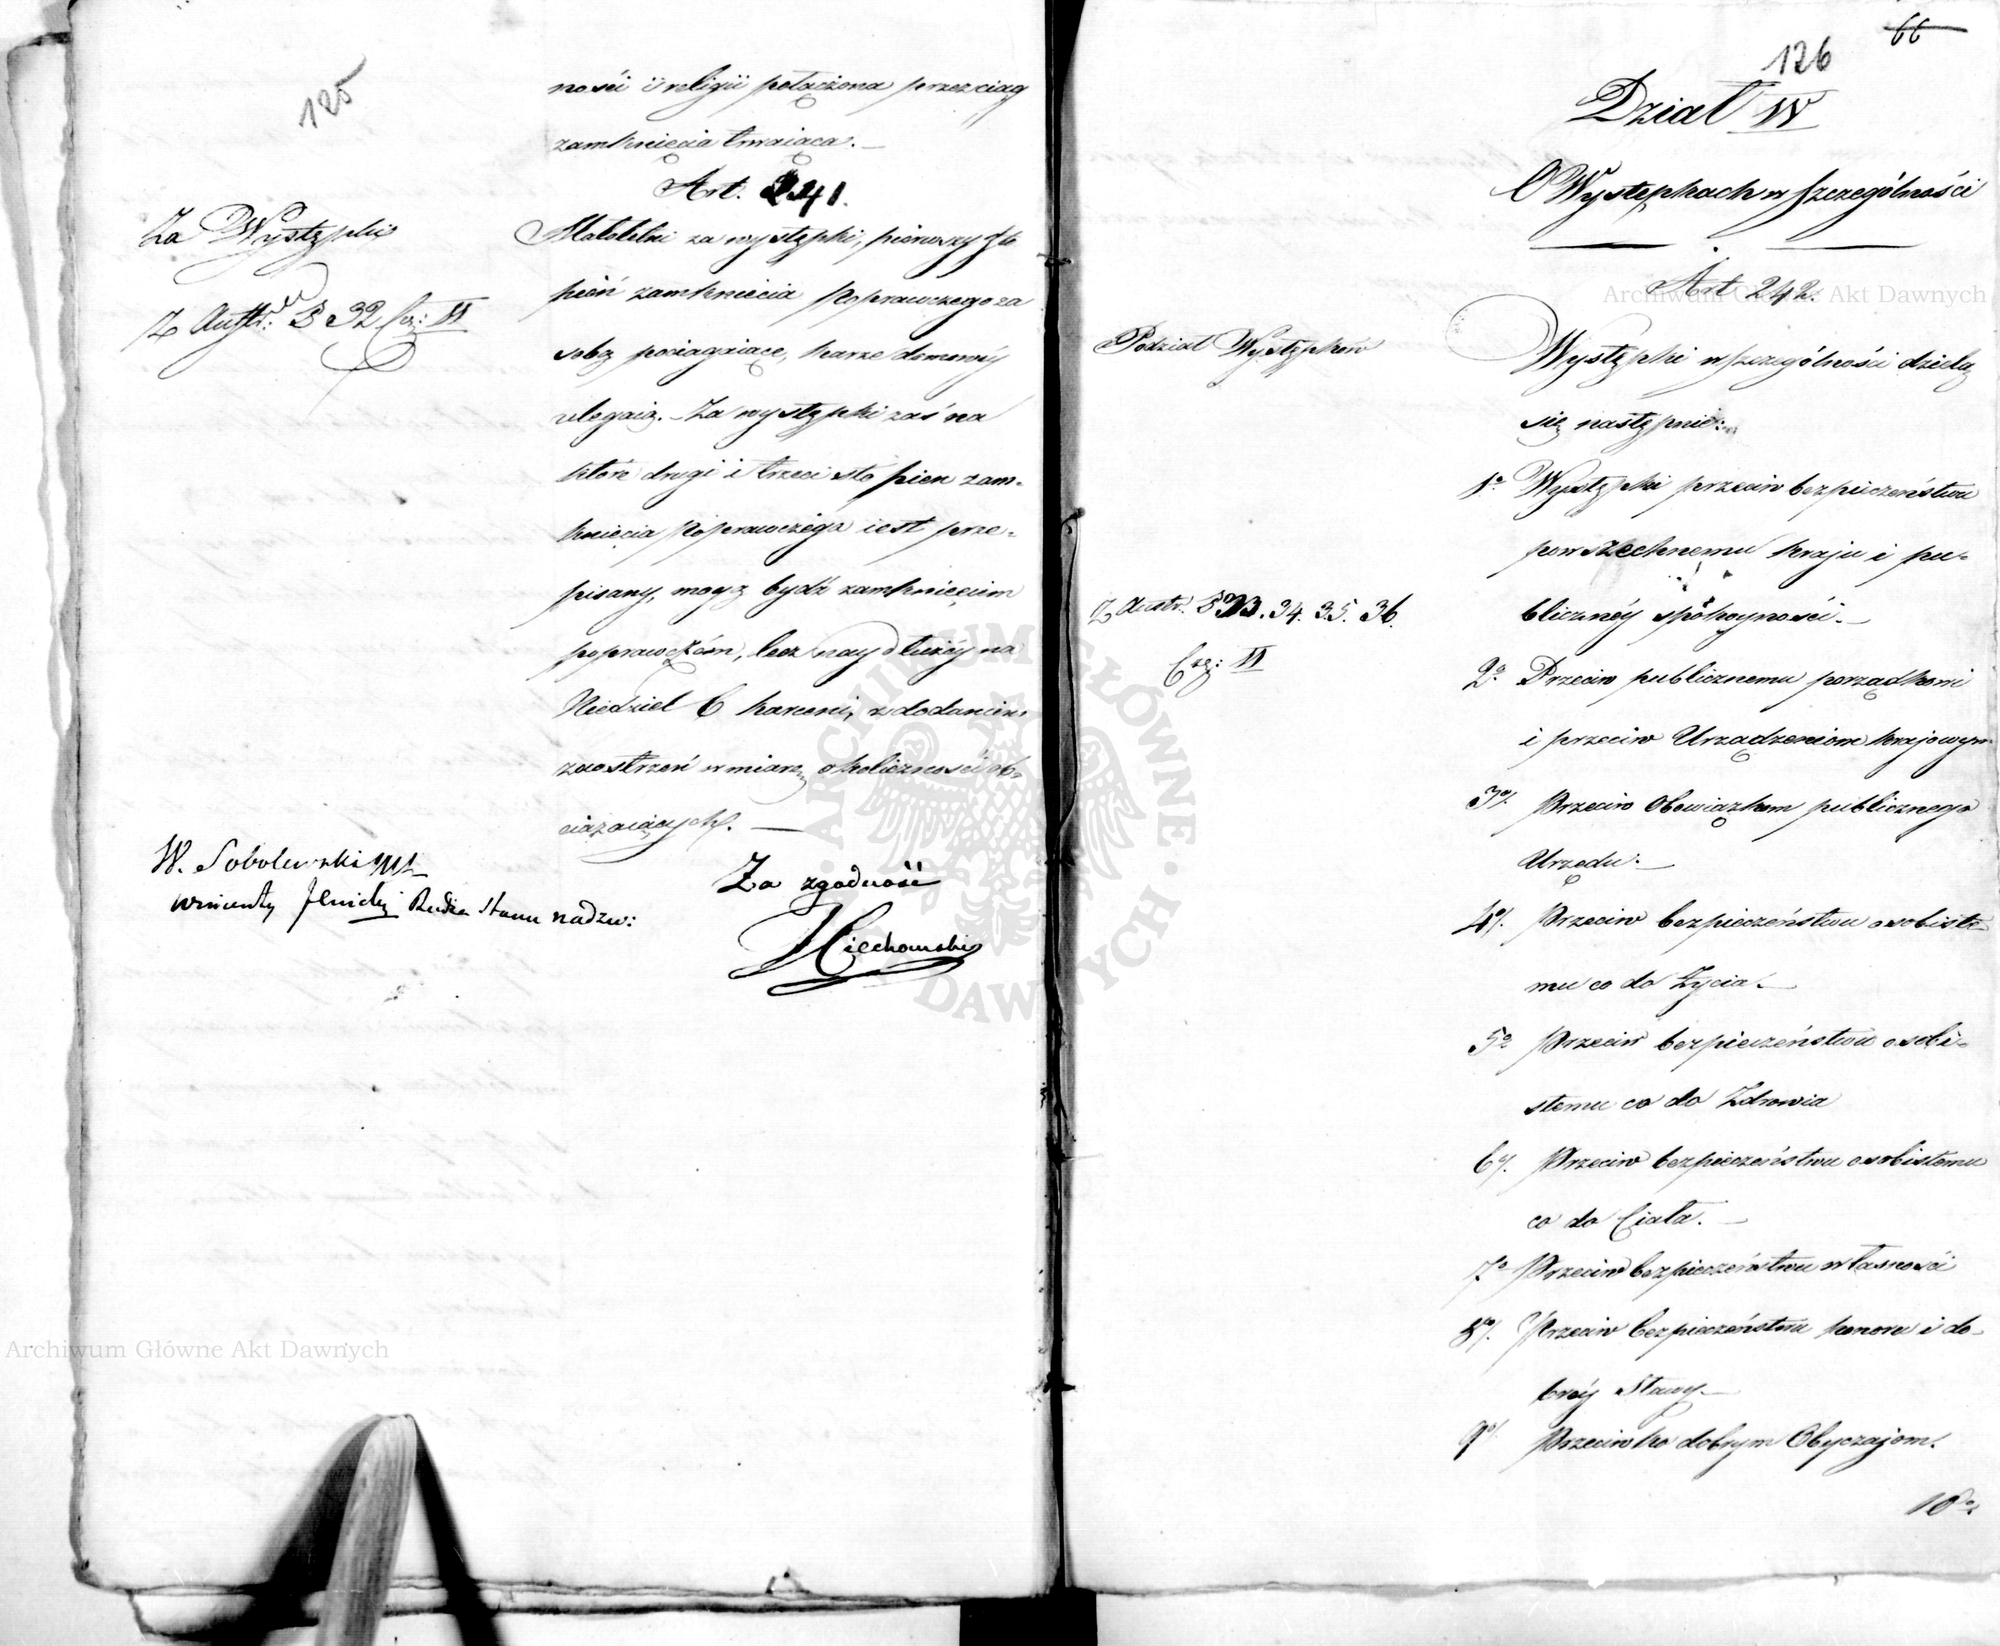 125
ności i religii połączona przez ciąg
zamknięcia trwaiąca. —
Art. 241.
Za Występki
Z Austr: § 32 Cz: II
Małoletni za występki, pierwszy sto
pień zamknięcia Poprawczego za
sobą pociągaiące, karze domowéy
ulegaią. – Za występki zaś na
które drugi i trzeci sto pien zam-
knięcia Poprawczego iest prze-
pisany, mogą bydź zamknięciem
poprawczém, lecz naydłużéy na
Niedziel 6 karceni, z dodaniem
zaostrzeń w miarę okoliczności ob-
ciążaiących. —
W. Sobolewski
Za zgodność
Radca Stanu nadzw:
Ciechowski
66
126
Dział IV
O Występkach w Szczególności
Art 242.
Podział Występków
Występki w szczególności dzielą
się następnie:
1o Występki przeciw bezpieczeństwu
powszechnemu kraju i pu-
blicznéy spokoyności. —
Z Austr. § 33. 34. 35. 36.
Cz: II
2o Przeciw publicznemu porządkowi
i przeciw Urządzeniom krajowym
3o/. Przeciw Obowiązkom publicznego
Urzędu. —
4o/. Przeciw bezpieczeństwu osobiste-
mu co do Życia. —
5o Przeciw bezpieczeństwu osobi-
stemu co do Zdrowia
6o/. Przeciw bezpieczeństwu osobistemu
co do Ciała. —
7o Przeciw bezpieczeństwu własności
8o/. Przeciw bezpieczeństwu honoru i do-
bréy Sławy. —
9o/. Przeciwko dobrym Obyczajom.
10o
Archiwum Główne Akt Dawnych
Archiwum Główne Akt Dawnych
ARCHIWUM GŁÓWNE AKT DAWNYCH